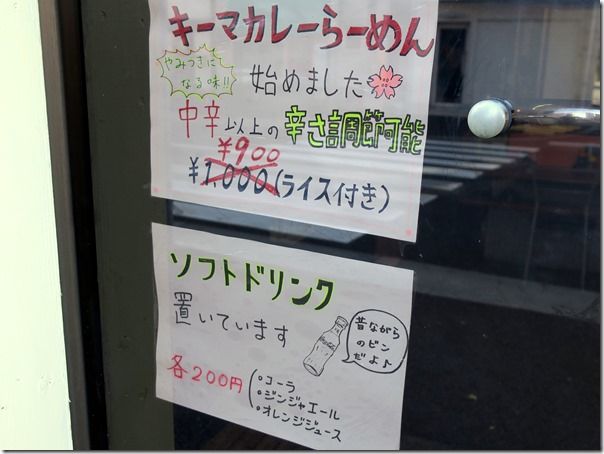 キーマカレーらーめん
やみつきに
なる味!!
始めました
中辛以上の辛さ調節可能
¥900
¥1,000(ライス付き)
ソフトドリンク
置いています
昔ながら
のビン
だよ♪
各200円
・コーラ
・ジンジャエール
・オレンジジュース